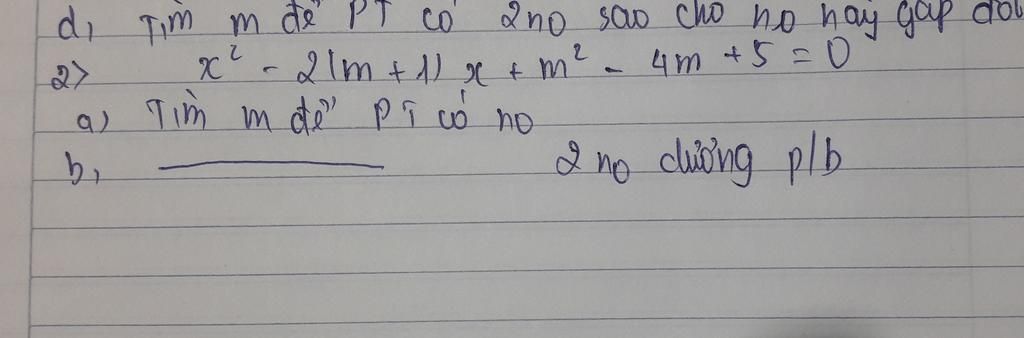 d, Tìm m để PT có 2no sao cho no này gấp đôi
2> x² - 2(m + 1) x + m² - 4m + 5 = 0
a) Tìm m để PT có no
b, 2 no dương p/b